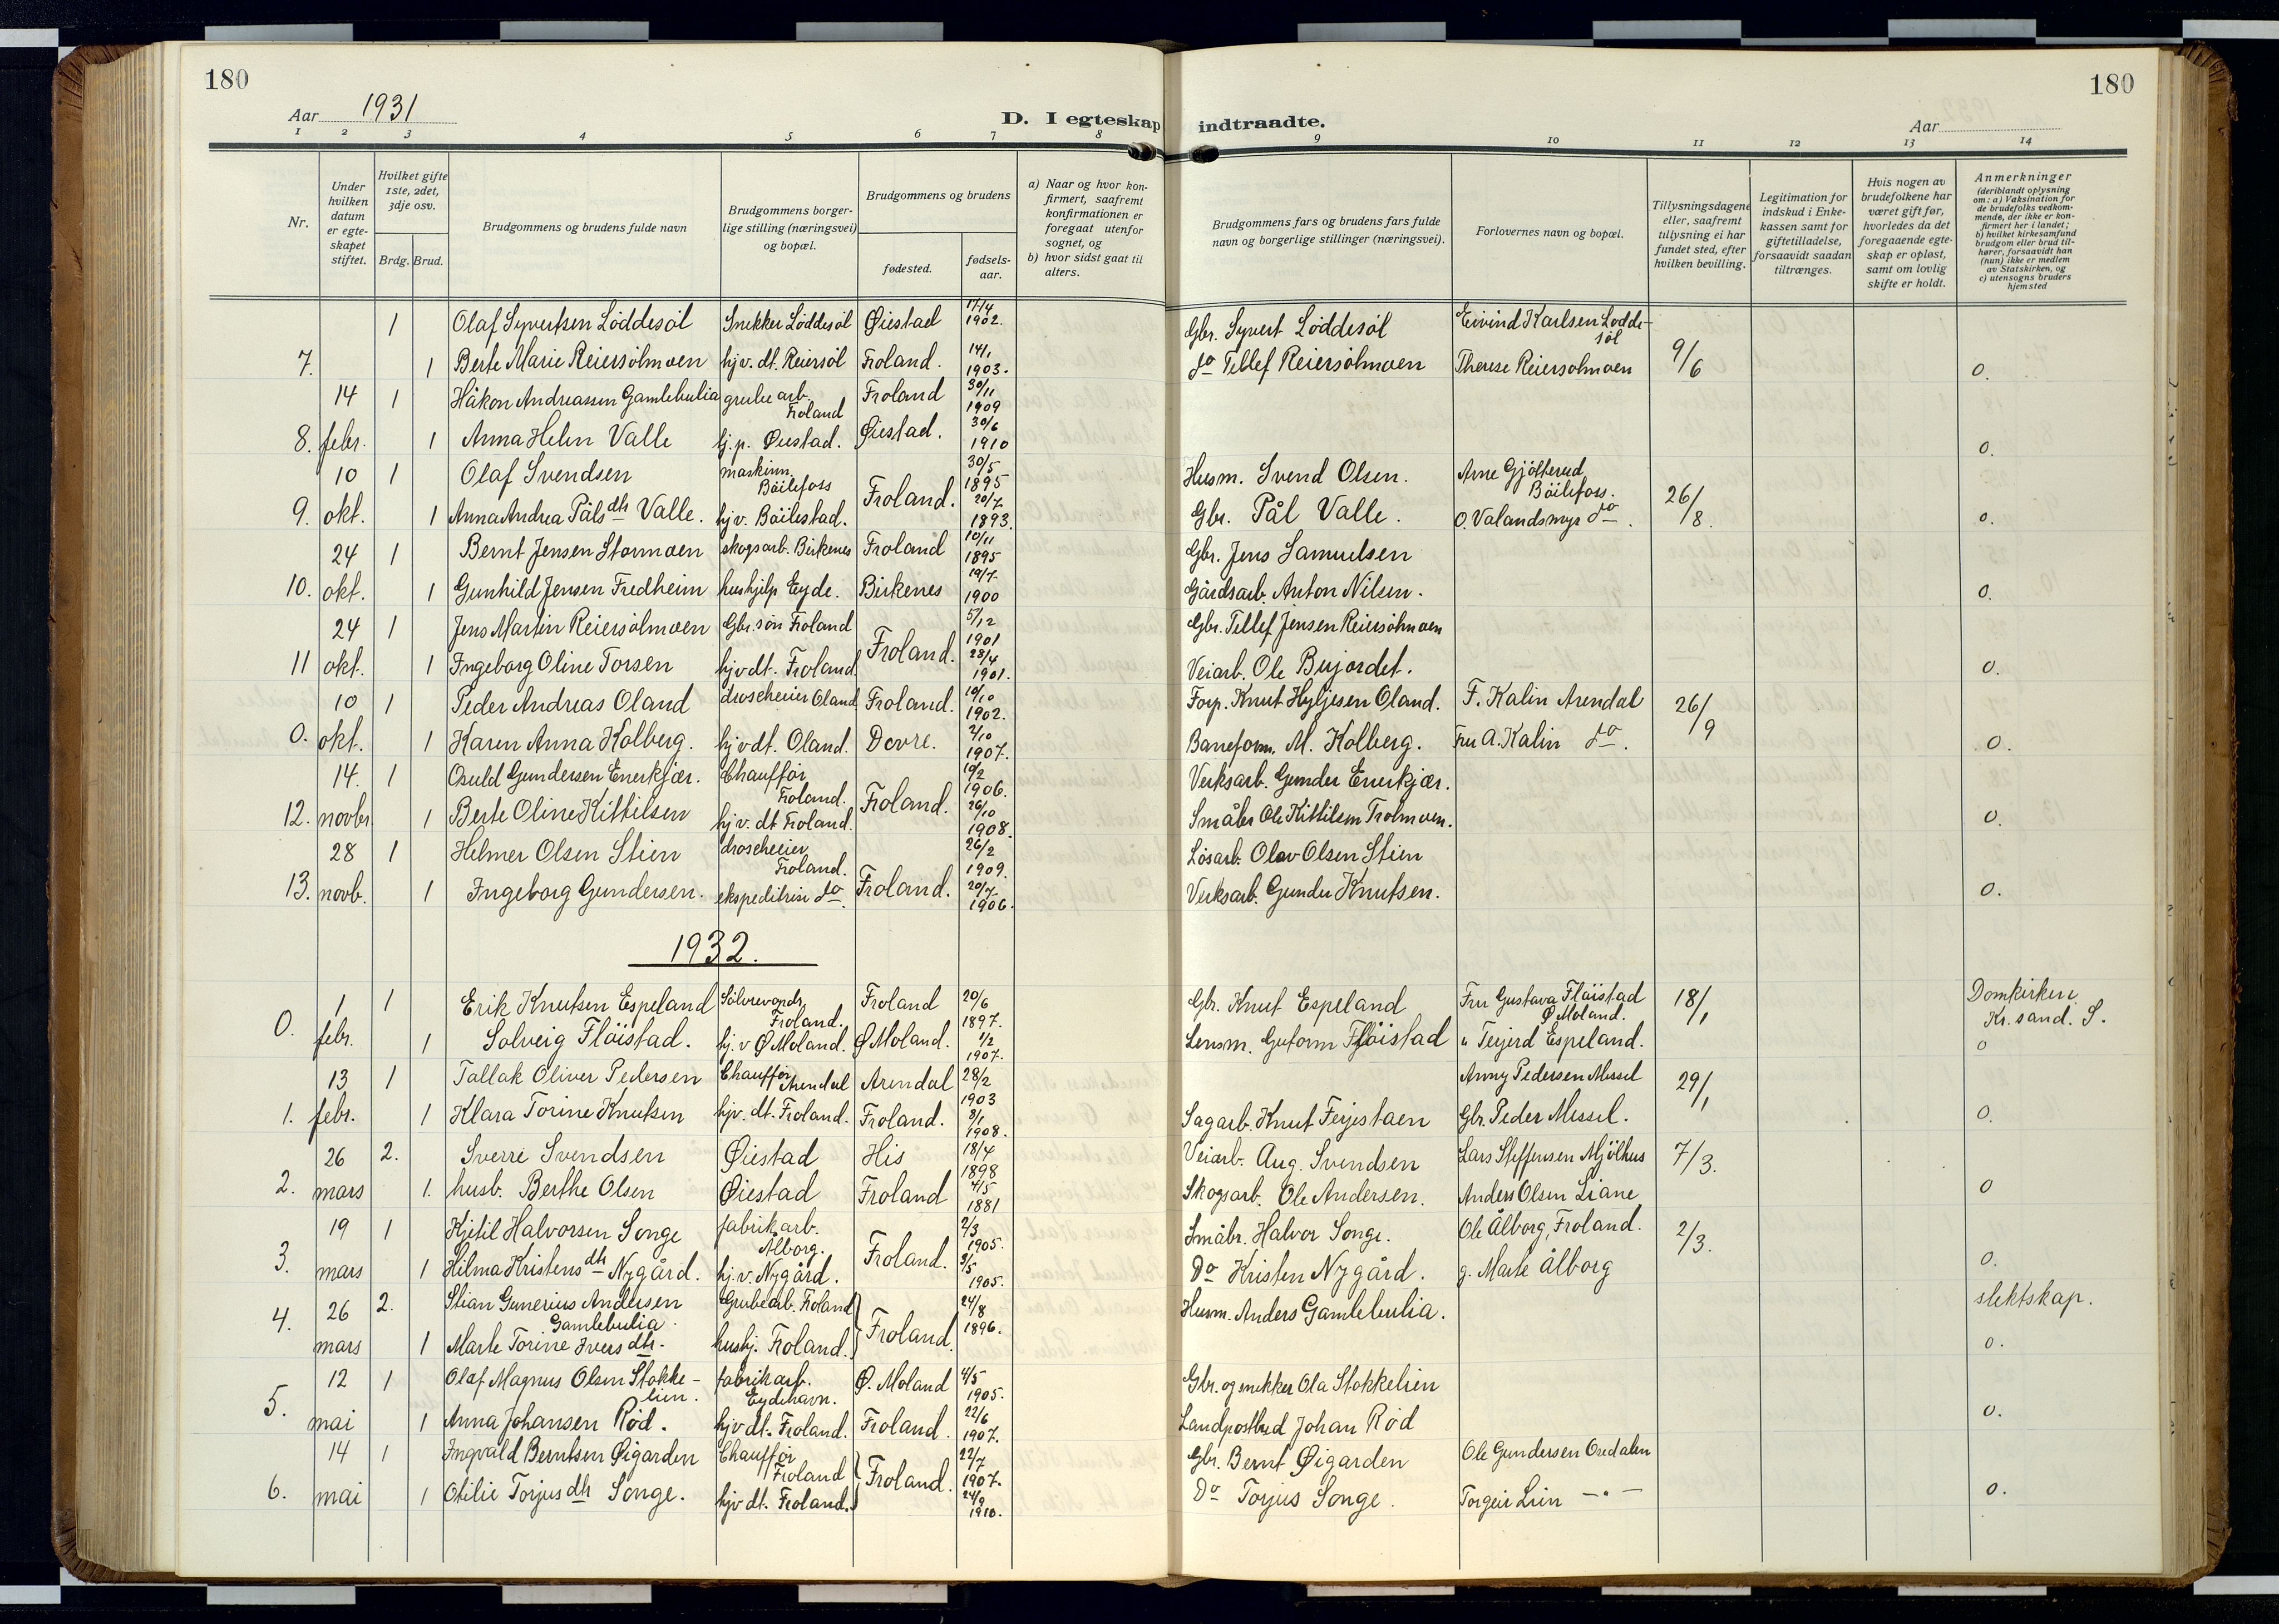 180
180
Aar 1931
D. I egteskap indtraadte.
Aar
1 2 3 4 5 6 7 8 9 10 11 12 13 14
Nr.
Under hvilken datum er egteskapet stiftet.
Hvilket gifte 1ste, 2det, 3dje osv.
Brdg. Brud.
Brudgommens og brudens fulde navn
Brudgommens borgerlige stilling (næringsvei) og bopæl.
Brudgommens og brudens
fødested.
fødselsaar.
a) Naar og hvor konfirmert, saafremt konfirmationen er foregaat utenfor sognet, og
b) hvor sidst gaat til alters.
Brudgommens fars og brudens fars fulde navn og borgerlige stillinger (næringsvei).
Forlovernes navn og bopæl.
Tillysningsdagene eller, saafremt tillysning ei har fundet sted, efter hvilken bevilling.
Legitimation for indskud i Enkekassen samt for giftetilladelse, forsaavidt saadan tiltrænges.
Hvis nogen av brudefolkene har været gift før, hvorledes da det foregaaende egteskap er opløst, samt om lovlig skifte er holdt.
Anmerkninger
(deriblandt oplysning om: a) Vaksination for de brudefolks vedkommende, der ikke er konfirmert her i landet; b) hvilket kirkesamfund brudgom eller brud tilhører, forsaavidt han (hun) ikke er medlem av Statskirken, og c) utensogns bruders hjemsted
1 Olaf Syvertsen Löddesöl Snekker Löddesöl Øiestad 17/4 1902. Gbr. Syvert Löddesöl Eivind Karlsen Lodde-söl
7. 1 Berte Marie Reiersölmoen hjv. dt. Reiersöl Froland. 14/1 1903. do Tellef Reiersölmoen Therese Reiersolmoen 9/6 0.
14 1 Håkon Andreassen Gamlebulia grube arb. Froland Froland 30/11 1909
8. febr. 1 Anna Helen Valle hj. p. Øiestad. Øiestad. 30/6 1910 0.
10 1 Olaf Svendsen maskinm. Böilefoss Froland. 30/5 1895 Husm. Svend Olsen. Arne Gjölterud Böilefoss.
9. okt. 1 Anna Andrea Pålsdtr Valle. hjv. Böilestad. 20/7 1893. Gbr. Pål Valle. O. Valandsmyr do. 26/8. 0.
24 1 Bernt Jensen Stormoen skogsarb. Birkenes Froland 10/11 1895 Gbr. Jens Samuelsen
10. okt. 1 Gunhild Jensen Fredheim hushjelp Eyde. Birkenes 19/7 1900 Gårdsarb. Anton Nilsen. 0.
24 1 Jens Martin Reiersölmoen Gbr. sön Froland Froland. 5/12 1901 Gbr. Tellef Jensen Reiersölmoen
11 okt. 1 Ingeborg Oline Torsen hjv dt. Froland. 28/4 1901. Veiarb. Ole Bujordet. 0.
10 1 Peder Andreas Oland droscheeier Oland Froland. 10/10 1902. Forp. Knut Hyljesen Oland. F. Kalin Arendal 26/9
0. okt. 1 Karen Anna Kolberg. hjv dt. Oland. Dovre. 2/10 1907. Baneform. M. Kolberg. Fru A. Kalin do. 0.
14. 1 Osuld Gundersen Enerkjær. Chaufför Froland. Froland. 10/2 1906. Verksarb. Gunder Enerkjær.
12. novbr 1 Berte Oline Kittilsen hjv. dt Froland. 26/10 1908. Småbr Ole Kittilsen Trolmoen. 0.
28 1 Helmer Olsen Stien droscheeier, Froland. Froland. 26/2 1909. Lösarb. Olav Olsen Stien
13. novb. 1 Ingeborg Gundersen. ekspeditrise do. 20/7 1906. Verksarb. Gunder Knutsen. 0.
1932.
1 1 Erik Knutsen Espeland Sölvrevopdr. Froland. Froland 20/6 1897. Gbr. Knut Espeland Fru Gustava Flöistad Ø Moland. 18/1 Domkirken Kr. sand. S.
0. febr. 1 Solveig Flöistad. hj. v Ø Moland. Ø Moland. 1/2 1907. Lensm. Guttorm Flöistad " Terjerd Espeland. 0
13 1 Tallak Oliver Pedersen Chaufför Arendal Arendal 28/2 1903 Anny Pedersen Messel 29/1
1. febr. 1 Klara Torine Knutsen hjv. dt. Froland. Froland. 8/1 1908. Sagarb. Knut Ferjestaen Gbr. Peder Messel. 0.
26 2. Sverre Svendsen Øiestad His 18/4 1898 Veiarb. Aug. Svendsen Lars Steffensen Mjölhus 7/3.
2. mars 1. husb. Berthe Olsen Øiestad Froland 4/5 1881 Skogsarb. Ole Andersen. Anders Olsen Liane 0
19 1 Kjetil Halvorsen Songe fabrikarb. Ålborg. Froland. 2/3 1905. Småbr. Halvor Songe. Ole Ålborg, Froland. 2/3.
3. mars 1 Hilma Kristensdtr Nygård. hj. v. Nygård. 3/5 1905. Do Kristen Nygård. g. Marte Ålborg 0.
4. 26 2. Stian Gunerius Andersen Gamlebulia. Grubearb. Froland Froland. 24/8 1896. Husm. Anders Gamlebulia. slektskap.
mars 1 Marte Torine Iversdtr. hushj. Froland. 0.
12 1 Olaf Magnus Olsen Stokke-lien. fabrikarb. Eydehavn. Ø. Moland 4/5 1905. Gbr. og snekker Ola Stokkelien
5. mai 1 Anna Johansen Röd. hjv dt. Froland. Froland. 22/6 1907. Landpostbud Johan Röd 0.
14 1 Ingvald Berntsen Øigarden Chaufför Froland Froland. 22/7 1907. Gbr. Bernt Øigarden Ole Gundersen Osedalen
6. mai 1 Otilie Torjusdtr Songe. hjv dt. Froland. 24/9 1910. Do Torjus Songe. Torgeir Lien —"— 0.